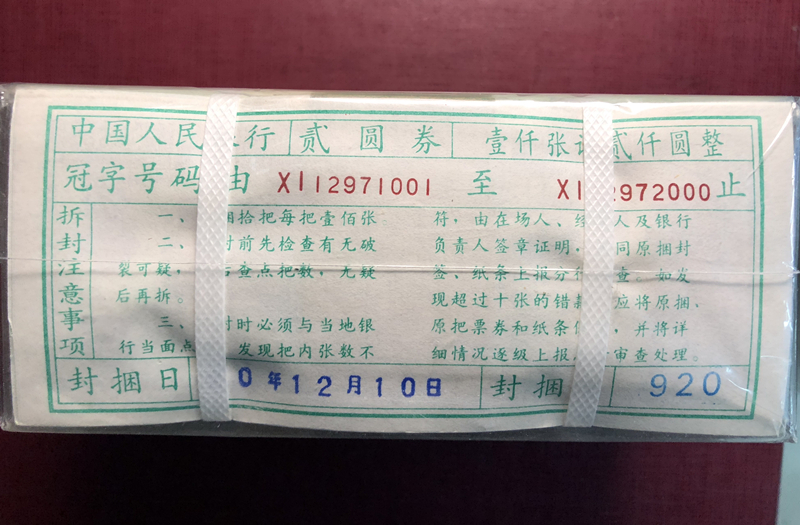 中国人民 行 贰圆券 壹仟张 贰仟圆整
冠字号码由 XI12971001 至 XI 2972000止
拆封注意事项
一、 捆拾把每把壹佰张
二、 封前先检查有无破
裂可疑, 后查点把数,无疑
后再拆。
三、 封时必须与当地银
行当面点 发现把内张数不
符,由在场人、经 人及银行
负责人签章证明, 同原捆封
签、纸条上报分行 查。如发
现超过十张的错款 应将原捆、
原把票券和纸条 ,并将详
细情况逐级上报 审查处理。
封捆日 0年12月10日 封捆 920